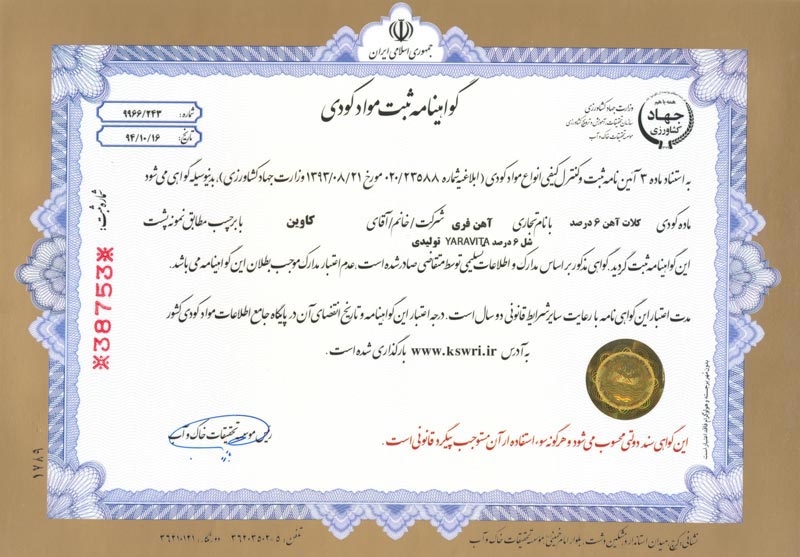 جمهوری اسلامی ایران
گواهینامه ثبت مواد کودی
شماره: ۹۹۶۶/۲۴۳
تاریخ: ۹۴/۱۰/۱۶
همه با هم
جهاد
کشاورزی
وزارت جهاد کشاورزی
سازمان تحقیقات، آموزش و ترویج کشاورزی
موسسه تحقیقات خاک و آب
به استناد ماده ۳ آئین نامه ثبت و کنترل کیفی انواع مواد کودی (ابلاغیه شماره ۰۲۰/۲۳۵۸۸ مورخ ۱۳۹۳/۰۸/۲۱ وزارت جهاد کشاورزی)، بدینوسیله گواهی می شود
ماده کودی کلات آهن ۶ درصد با نام تجاری آهن فری شرکت / خانم / آقای کاوین با برچسب مطابق نمونه پشت
شل ۶ درصد YARAVITA تولیدی
این گواهینامه ثبت گردید. گواهی مذکور بر اساس مدارک و اطلاعات تسلیمی توسط متقاضی صادر شده است، عدم اعتبار مدارک موجب بطلان این گواهینامه می باشد.
مدت اعتبار این گواهی نامه با رعایت سایر شرایط قانونی دو سال است. درجه اعتبار این گواهینامه و تاریخ انقضای آن در پایگاه جامع اطلاعات مواد کودی کشور
به آدرس www.kswri.ir بارگذاری شده است.
این گواهی سند دولتی محسوب می شود و هرگونه سوء استفاده از آن مستوجب پیگرد قانونی است.
رئیس موسسه تحقیقات خاک و آب
شماره ثبت:
※38753※
بدون مهر برجسته و هولوگرام فاقد اعتبار است
۱۷۸۹
نشانی: کرج، میدان استاندارد، مشکین دشت، بلوار امام خمینی، موسسه تحقیقات خاک و آب
تلفن: ۵-۳۶۲۰۳۵۰۲ دورنگار: ۳۶۲۱۰۱۲۱